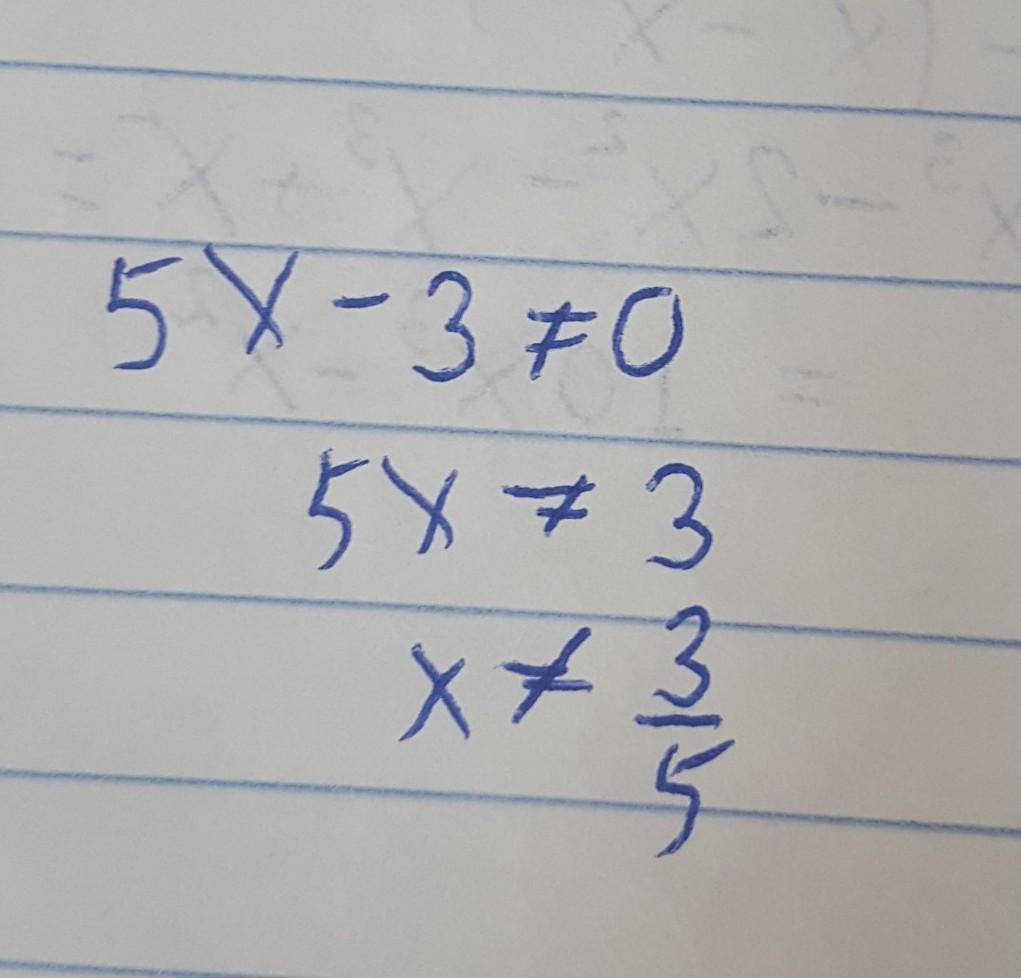 5x - 3 ≠ 0
5x ≠ 3
x ≠ 3/5